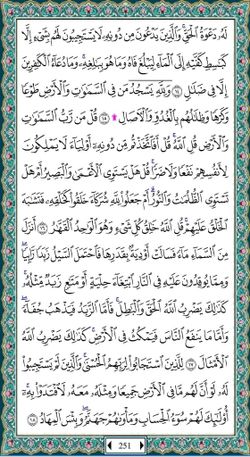 لَهُۥ دَعْوَةُ ٱلْحَقِّ وَٱلَّذِينَ يَدْعُونَ مِن دُونِهِۦ لَا يَسْتَجِيبُونَ لَهُم بِشَىْءٍ إِلَّا
كَبَٰسِطِ كَفَّيْهِ إِلَى ٱلْمَآءِ لِيَبْلُغَ فَاهُ وَمَا هُوَ بِبَٰلِغِهِۦ ۚ وَمَا دُعَآءُ ٱلْكَٰفِرِينَ
إِلَّا فِى ضَلَٰلٍ ١٤ وَلِلَّهِ يَسْجُدُ مَن فِى ٱلسَّمَٰوَٰتِ وَٱلْأَرْضِ طَوْعًا
وَكَرْهًا وَظِلَٰلُهُم بِٱلْغُدُوِّ وَٱلْءَاصَالِ ۩ ١٥ قُلْ مَن رَّبُّ ٱلسَّمَٰوَٰتِ
وَٱلْأَرْضِ قُلِ ٱللَّهُ ۚ قُلْ أَفَٱتَّخَذْتُم مِّن دُونِهِۦٓ أَوْلِيَآءَ لَا يَمْلِكُونَ
لِأَنفُسِهِمْ نَفْعًا وَلَا ضَرًّا ۚ قُلْ هَلْ يَسْتَوِى ٱلْأَعْمَىٰ وَٱلْبَصِيرُ أَمْ هَلْ
تَسْتَوِى ٱلظُّلُمَٰتُ وَٱلنُّورُ ۗ أَمْ جَعَلُوا۟ لِلَّهِ شُرَكَآءَ خَلَقُوا۟ كَخَلْقِهِۦ فَتَشَٰبَهَ
ٱلْخَلْقُ عَلَيْهِمْ ۚ قُلِ ٱللَّهُ خَٰلِقُ كُلِّ شَىْءٍ وَهُوَ ٱلْوَٰحِدُ ٱلْقَهَّٰرُ ١٦ أَنزَلَ
مِنَ ٱلسَّمَآءِ مَآءً فَسَالَتْ أَوْدِيَةٌۢ بِقَدَرِهَا فَٱحْتَمَلَ ٱلسَّيْلُ زَبَدًا رَّابِيًا ۚ
وَمِمَّا يُوقِدُونَ عَلَيْهِ فِى ٱلنَّارِ ٱبْتِغَآءَ حِلْيَةٍ أَوْ مَتَٰعٍ زَبَدٌ مِّثْلُهُۥ ۚ
كَذَٰلِكَ يَضْرِبُ ٱللَّهُ ٱلْحَقَّ وَٱلْبَٰطِلَ ۚ فَأَمَّا ٱلزَّبَدُ فَيَذْهَبُ جُفَآءً ۖ
وَأَمَّا مَا يَنفَعُ ٱلنَّاسَ فَيَمْكُثُ فِى ٱلْأَرْضِ ۚ كَذَٰلِكَ يَضْرِبُ ٱللَّهُ
ٱلْأَمْثَالَ ١٧ لِلَّذِينَ ٱسْتَجَابُوا۟ لِرَبِّهِمُ ٱلْحُسْنَىٰ ۚ وَٱلَّذِينَ لَمْ يَسْتَجِيبُوا۟
لَهُۥ لَوْ أَنَّ لَهُم مَّا فِى ٱلْأَرْضِ جَمِيعًا وَمِثْلَهُۥ مَعَهُۥ لَٱفْتَدَوْا۟ بِهِۦٓ ۚ
أُو۟لَٰٓئِكَ لَهُمْ سُوٓءُ ٱلْحِسَابِ وَمَأْوَىٰهُمْ جَهَنَّمُ ۖ وَبِئْسَ ٱلْمِهَادُ ١٨
251